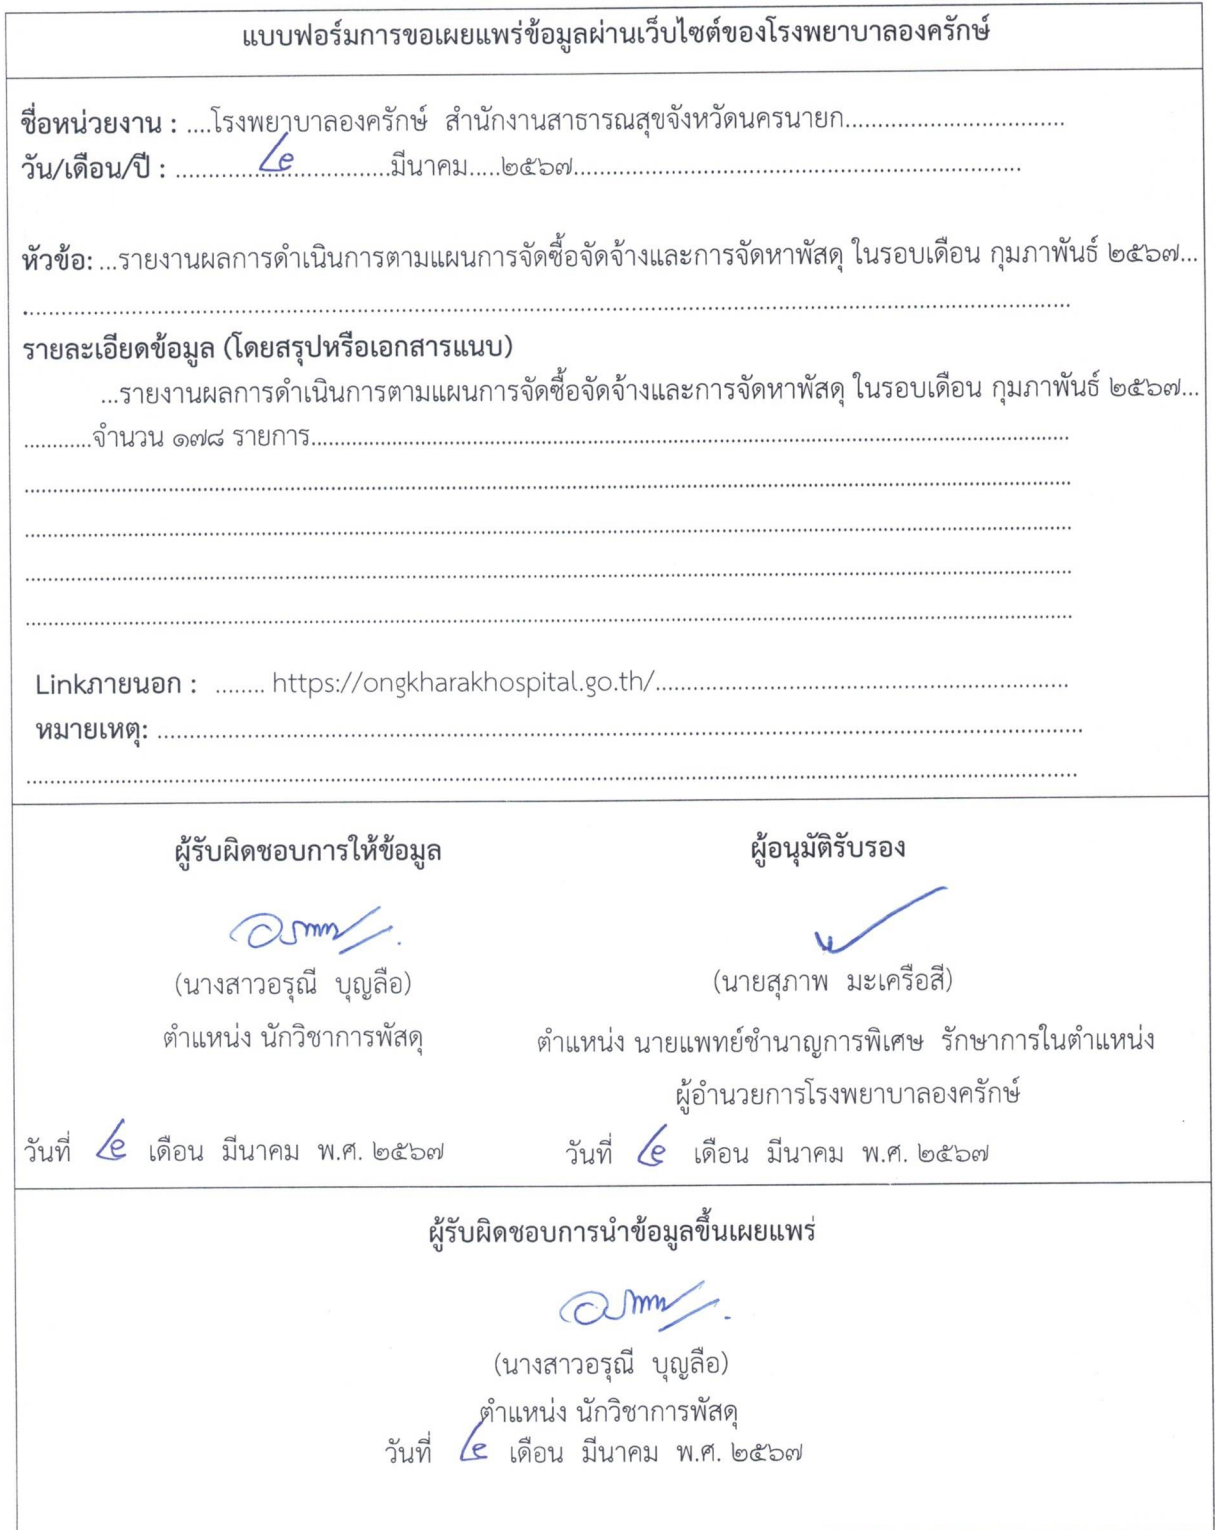 แบบฟอร์มการขอเผยแพร่ข้อมูลผ่านเว็บไซต์ของโรงพยาบาลองครักษ์
ชื่อหน่วยงาน : ....โรงพยาบาลองครักษ์ สำนักงานสาธารณสุขจังหวัดนครนายก.................................
วัน/เดือน/ปี : ................................มีนาคม.....๒๕๖๗...................................................................
หัวข้อ: ...รายงานผลการดำเนินการตามแผนการจัดซื้อจัดจ้างและการจัดหาพัสดุ ในรอบเดือน กุมภาพันธ์ ๒๕๖๗...
รายละเอียดข้อมูล (โดยสรุปหรือเอกสารแนบ)
...รายงานผลการดำเนินการตามแผนการจัดซื้อจัดจ้างและการจัดหาพัสดุ ในรอบเดือน กุมภาพันธ์ ๒๕๖๗...
...........จำนวน ๑๗๘ รายการ...................................................................................
Linkภายนอก : ........ https://ongkharakhospital.go.th/..............................................................
หมายเหตุ: ..........................................................................................................
ผู้รับผิดชอบการให้ข้อมูล ผู้อนุมัติรับรอง
(นางสาวอรุณี บุญลือ) (นายสุภาพ มะเครือสี)
ตำแหน่ง นักวิชาการพัสดุ ตำแหน่ง นายแพทย์ชำนาญการพิเศษ รักษาการในตำแหน่ง
ผู้อำนวยการโรงพยาบาลองครักษ์
วันที่ เดือน มีนาคม พ.ศ. ๒๕๖๗ วันที่ เดือน มีนาคม พ.ศ. ๒๕๖๗
ผู้รับผิดชอบการนำข้อมูลขึ้นเผยแพร่
(นางสาวอรุณี บุญลือ)
ตำแหน่ง นักวิชาการพัสดุ
วันที่ เดือน มีนาคม พ.ศ. ๒๕๖๗